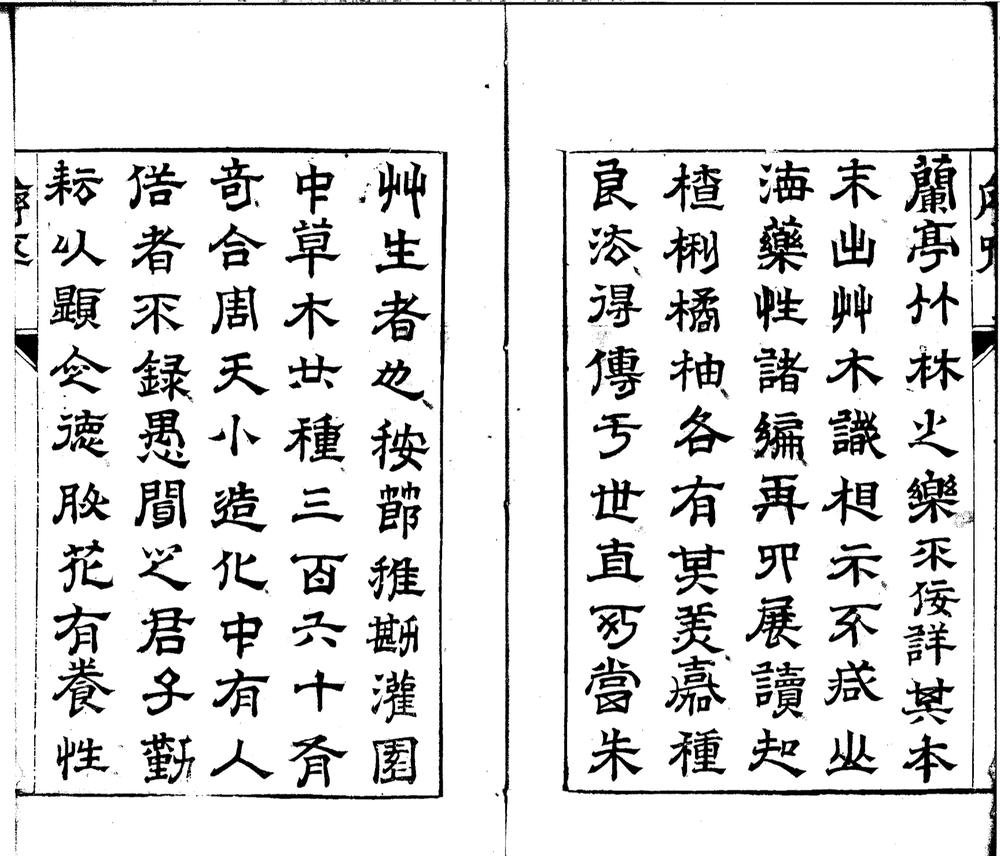 蘭亭竹林之樂不佞詳其本
末出艸木識相示不惑山
海藥性諸編再四展讀知
楂梨橘柚各有其美嘉種
良法得傳于世直可當朱
艸生者也按節推斟灌園
中草木廿種三百六十有
奇合周天小造化中有人
俗者不録愚聞之君子勤
耘以顯令德服花有養性